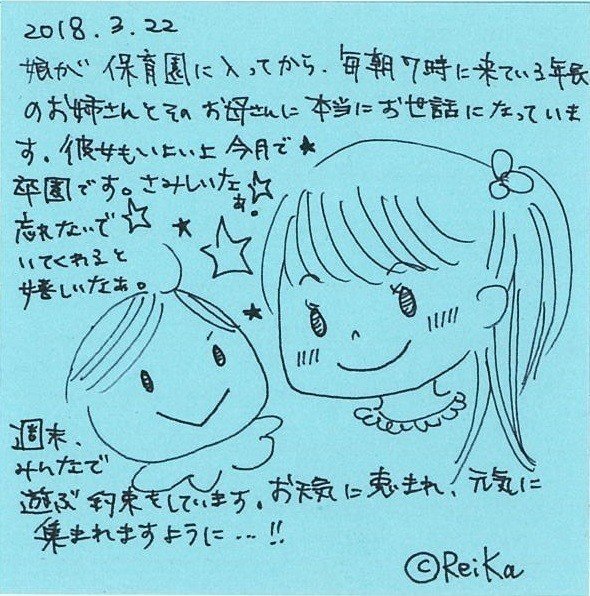 2018.3.22
娘が保育園に入ってから、毎朝7時に来ている年長
のお姉さんとそのお母さんに本当にお世話になっていま
す。彼女もいよいよ今月で
卒園です。さみしいなぁ。
忘れないで
いてくれると
嬉しいなぁ。
週末、
みんなで
遊ぶ約束もしています。お天気に恵まれ、元気に
集まれますように…!!
©ReiKa